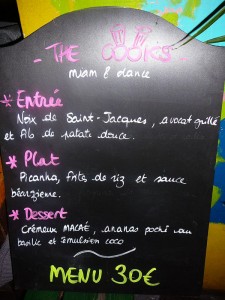 - THE COOKS -
miam & dance
* Entrée
Noix de Saint-Jacques, avocat grillé
et Pls de patate douce.
* Plat
Picanha, frites de riz et sauce
béarnaise.
* Dessert
Crémeux MACAÉ, ananas poché au
basilic et émulsion coco
MENU 30€